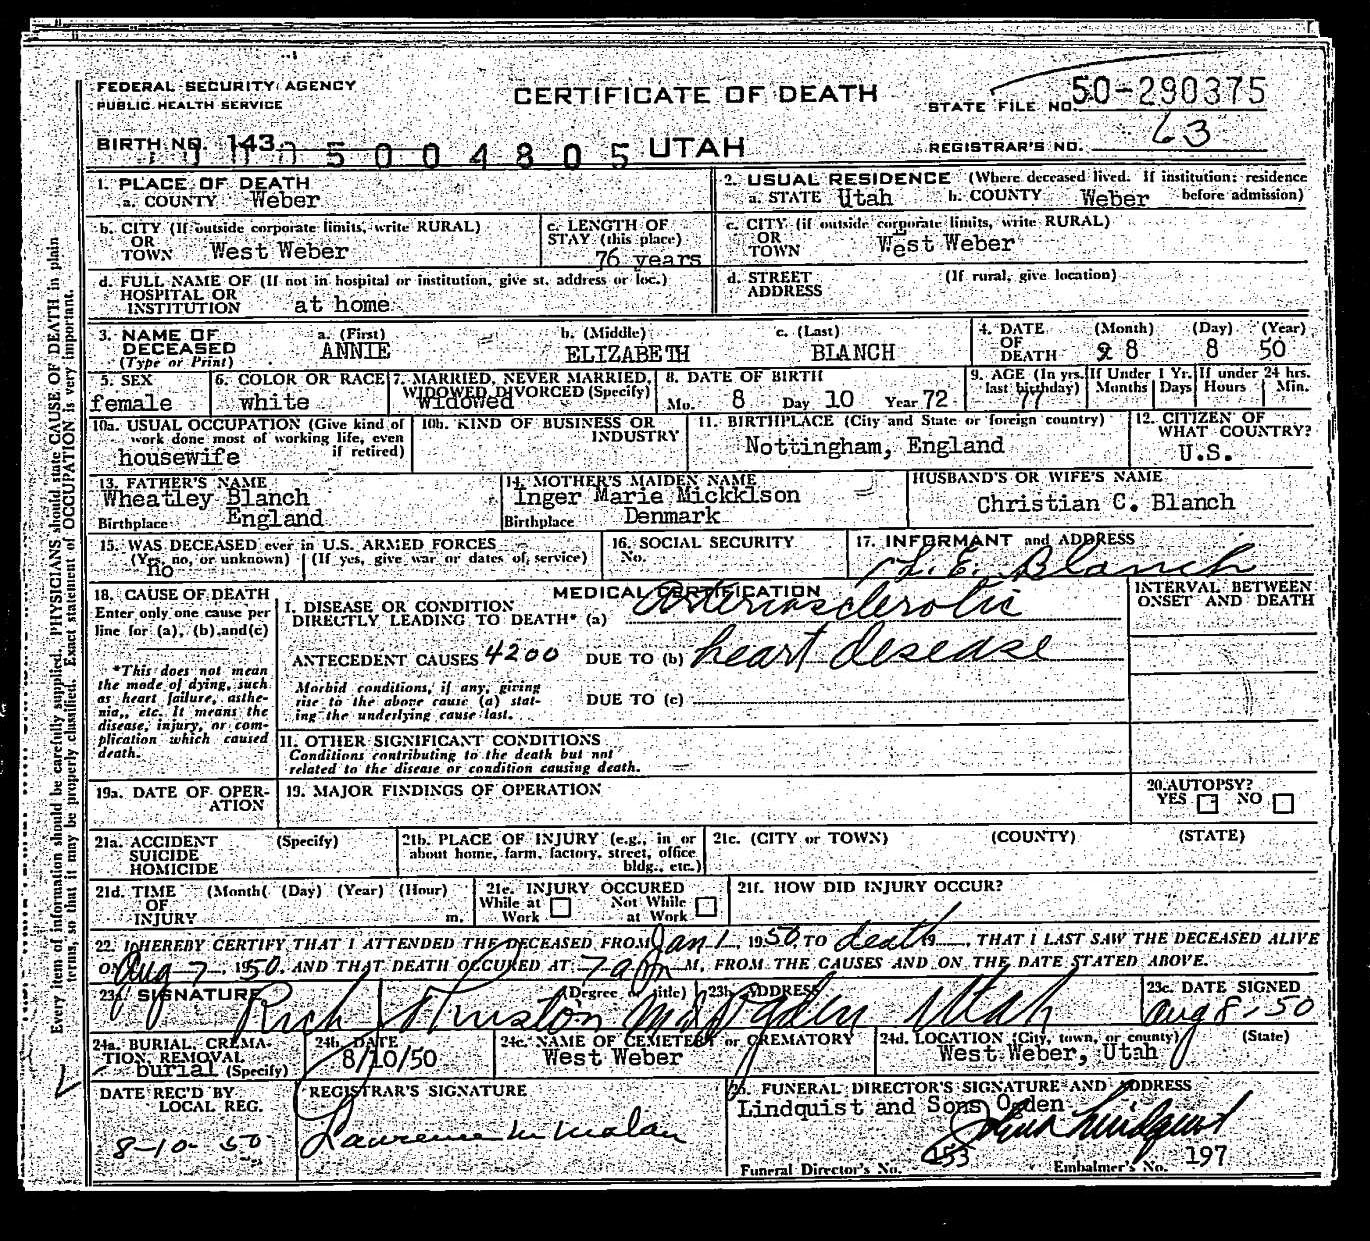 FEDERAL SECURITY AGENCY
PUBLIC HEALTH SERVICE
CERTIFICATE OF DEATH
STATE FILE NO. 50-290375
BIRTH NO. 143
0 5 0 0 4 8 0 5
UTAH
REGISTRAR'S NO. 63
1. PLACE OF DEATH
a. COUNTY Weber
2. USUAL RESIDENCE (Where deceased lived. If institution: residence before admission)
a. STATE Utah b. COUNTY Weber
b. CITY (If outside corporate limits, write RURAL) OR TOWN West Weber
c. LENGTH OF STAY (this place) 76 years
c. CITY (if outside corporate limits, write RURAL) OR TOWN West Weber
d. FULL NAME OF (If not in hospital or institution, give st. address or loc.) HOSPITAL OR INSTITUTION at home
d. STREET ADDRESS (If rural, give location)
3. NAME OF DECEASED (Type or Print)
a. (First) ANNIE
b. (Middle) ELIZABETH
c. (Last) BLANCH
4. DATE OF DEATH (Month) (Day) (Year)
8 8 50
5. SEX female
6. COLOR OR RACE white
7. MARRIED, NEVER MARRIED, WIDOWED DIVORCED (Specify) widowed
8. DATE OF BIRTH
Mo. 8 Day 10 Year 72
9. AGE (In yrs. last birthday) 77
If Under 1 Yr. Months Days
If under 24 hrs. Hours Min.
10a. USUAL OCCUPATION (Give kind of work done most of working life, even if retired) housewife
10b. KIND OF BUSINESS OR INDUSTRY
11. BIRTHPLACE (City and State or foreign country) Nottingham, England
12. CITIZEN OF WHAT COUNTRY? U.S.
13. FATHER'S NAME Wheatley Blanch
Birthplace England
14. MOTHER'S MAIDEN NAME Inger Marie Mickklson
Birthplace Denmark
HUSBAND'S OR WIFE'S NAME Christian C. Blanch
15. WAS DECEASED ever in U.S. ARMED FORCES
(Yes, no, or unknown) no (If yes, give war or dates of service)
16. SOCIAL SECURITY No.
17. INFORMANT and ADDRESS
L. E. Blanch
18. CAUSE OF DEATH
Enter only one cause per line for (a), (b), and (c)
*This does not mean the mode of dying, such as heart failure, asthenia, etc. It means the disease, injury, or complication which caused death.
MEDICAL CERTIFICATION
I. DISEASE OR CONDITION DIRECTLY LEADING TO DEATH* (a) Arteriosclerotic
ANTECEDENT CAUSES 4200 DUE TO (b) heart desease
Morbid conditions, if any, giving rise to the above cause (a) stating the underlying cause last.
DUE TO (c)
11. OTHER SIGNIFICANT CONDITIONS
Conditions contributing to the death but not related to the disease or condition causing death.
INTERVAL BETWEEN ONSET AND DEATH
19a. DATE OF OPERATION
19. MAJOR FINDINGS OF OPERATION
20. AUTOPSY?
YES NO
21a. ACCIDENT SUICIDE HOMICIDE (Specify)
21b. PLACE OF INJURY (e.g., in or about home, farm, factory, street, office bldg., etc.)
21c. (CITY or TOWN) (COUNTY) (STATE)
21d. TIME OF INJURY (Month( (Day) (Year) (Hour) m.
21e. INJURY OCCURED
While at Work Not While at Work
21f. HOW DID INJURY OCCUR?
22. I HEREBY CERTIFY THAT I ATTENDED THE DECEASED FROM Jan 1, 1950 TO death 19__, THAT I LAST SAW THE DECEASED ALIVE
ON Aug 7, 1950, AND THAT DEATH OCCURED AT 7 a M, FROM THE CAUSES AND ON THE DATE STATED ABOVE.
23a. SIGNATURE (Degree or title)
Rich Johnston MD
23b. ADDRESS
Ogden Utah
23c. DATE SIGNED
Aug 8-50
24a. BURIAL, CREMATION, REMOVAL (Specify) burial
24b. DATE 8/10/50
24c. NAME OF CEMETERY or CREMATORY West Weber
24d. LOCATION (City, town, or county) (State) West Weber, Utah
DATE REC'D BY LOCAL REG.
8-10-50
REGISTRAR'S SIGNATURE
Laurence M Malan
25. FUNERAL DIRECTOR'S SIGNATURE AND ADDRESS
Lindquist and Sons Ogden
John Lindquist
Funeral Director's No. 153 Embalmer's No. 197
Every item of information should be carefully supplied. PHYSICIANS should state CAUSE OF DEATH in plain
terms, so that it may be properly classified. Exact statement of OCCUPATION is very important.